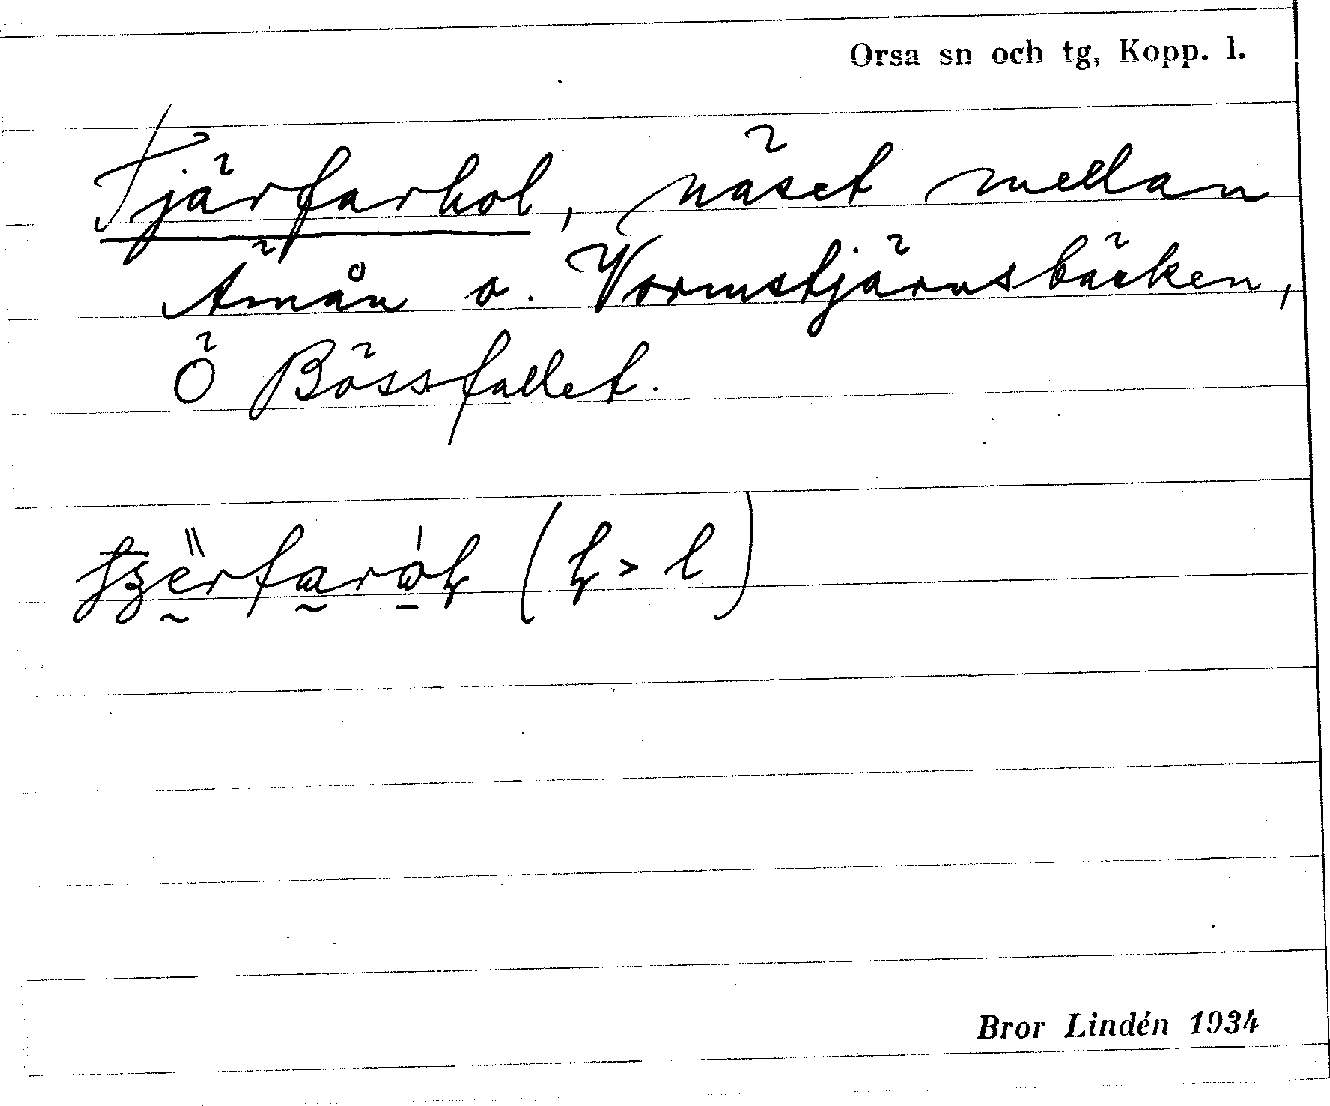 Orsa sn och tg, Kopp. l.
Tjärfarhol, näset mellan
Ämån o. Vormstjärnsbäcken,
Ö Bössfallet.
Bror Lindén 1934